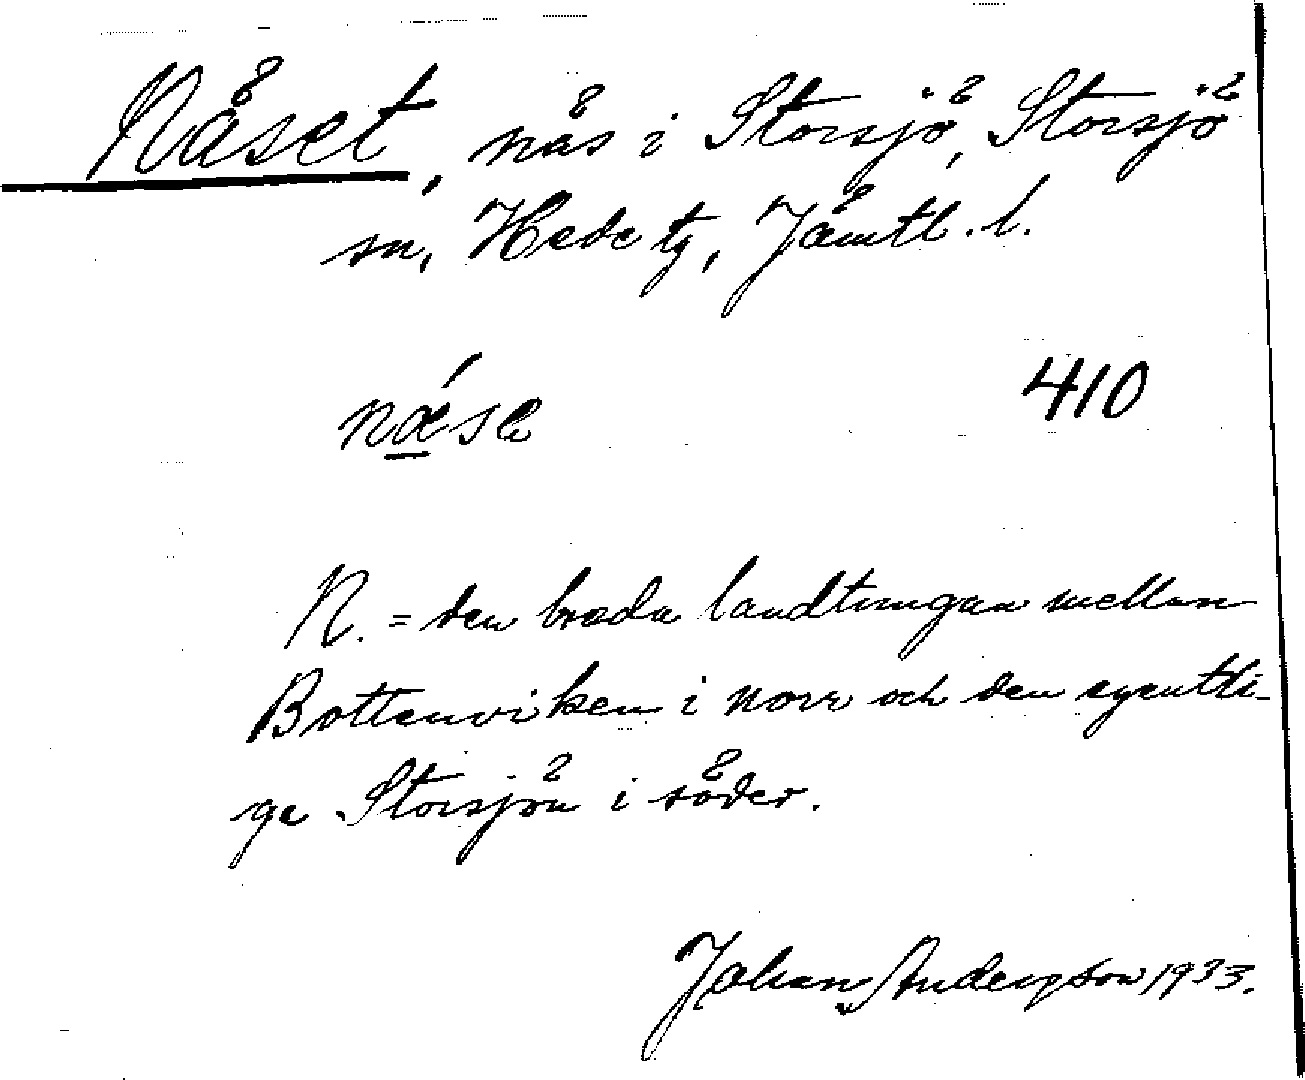 Näset, näs i Storsjö, Storsjö
sn, Hede tg, Jämtl. l.
nǽ̱se 410
N. = den breda landtungan mellan
Bottenviken i norr och den egentli-
ge Storsjön i söder.
Johan Andersson 1933.